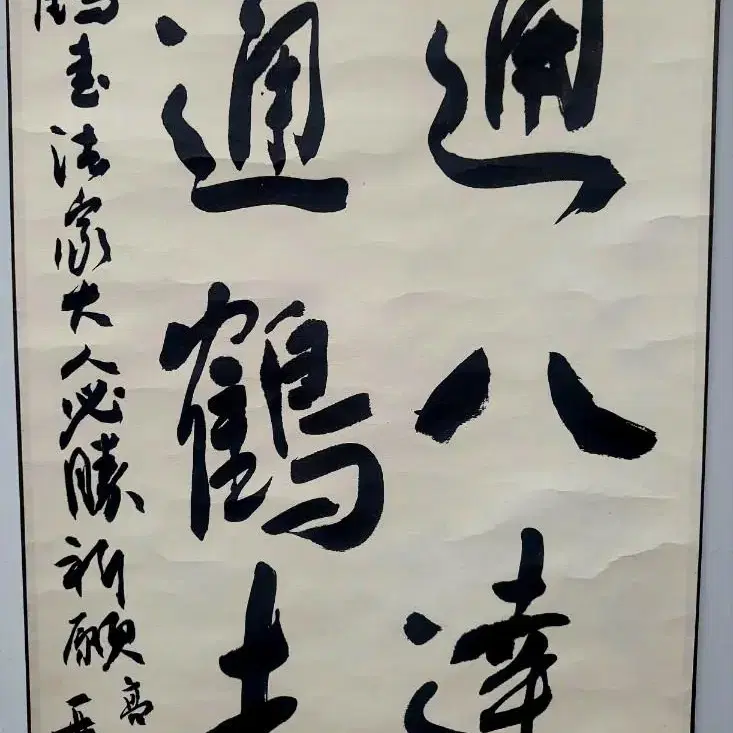 通八達
通鶴
書法家大人必勝祈願